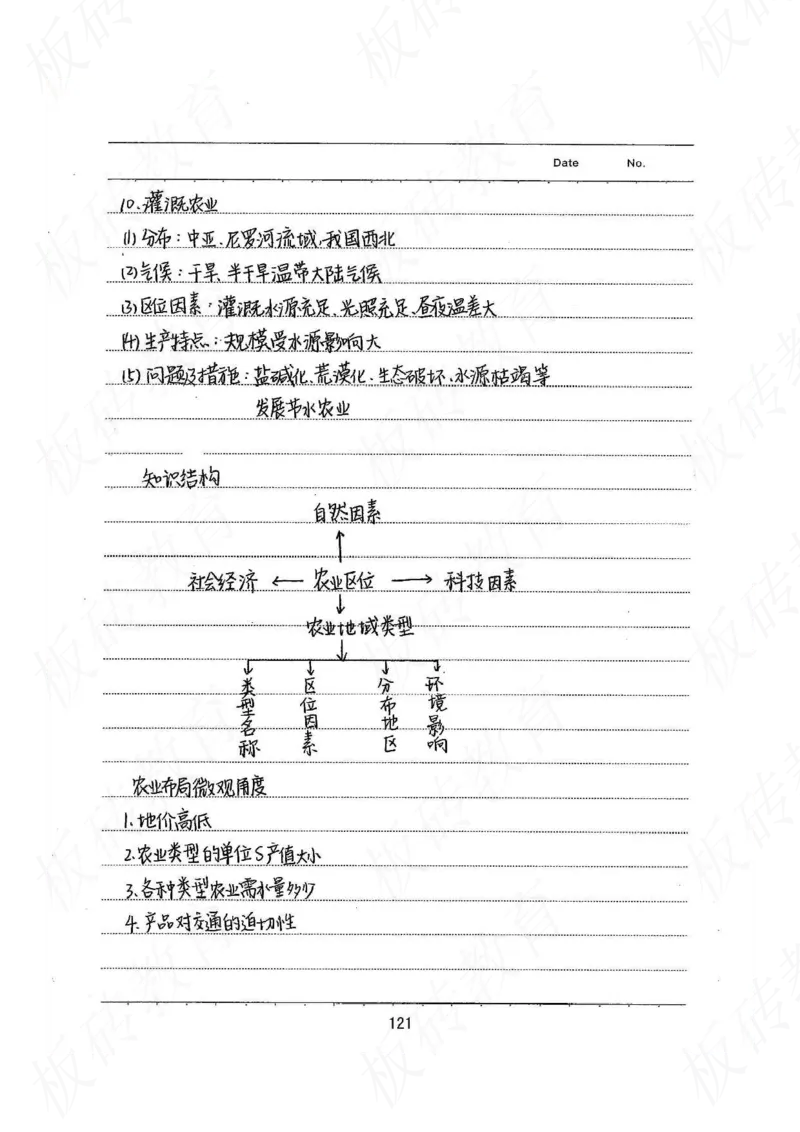 Date No.
10、灌溉农业
(1) 分布：中亚、尼罗河流域，我国西北
(2) 气侯：干旱、半干旱温带大陆气侯
(3) 区位因素：灌溉水源充足、光照充足、昼夜温差大
(4) 生产特点：规模受水源影响大
(5) 问题及措施：盐碱化、荒漠化、生态破坏、水源枯竭等
发展节水农业
知识结构
自然因素
社会经济 ← 农业区位 → 科技因素
农业地域类型
类型名称 区位因素 分布地区 环境影响
农业布局微观角度
1、地价高低
2、农业类型的单位S产值大小
3、各种类型农业需水量多少
4、产品对交通的迫切性
121
板砖教育